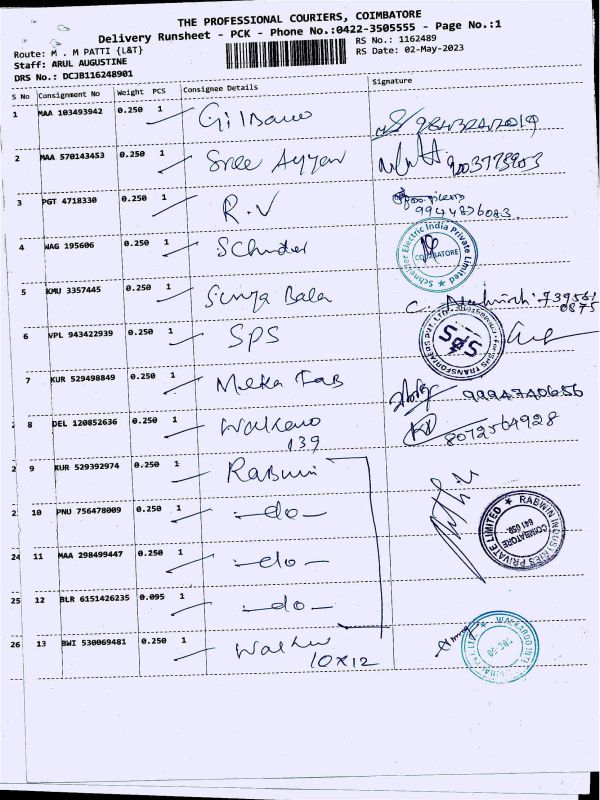 THE PROFESSIONAL COURIERS, COIMBATORE
Delivery Runsheet - PCK - Phone No.:0422-3505555 - Page No.:1
Route: M . M PATTI {L&T}
RS No.: 1162489
Staff: ARUL AUGUSTINE
RS Date: 02-May-2023
DRS No.: DCJB116248901
S No Consignment No Weight PCS Consignee Details Signature
1 MAA 103493942 0.250 1
2 MAA 570143453 0.250 1 Sree Ayyan
3 PGT 4718330 0.250 1 R.V
9944836083
4 WAG 195606 0.250 1
Schneider Electric India Private Limited COIMBATORE
5 KMU 3357445 0.250 1 Surya Bala
6 VPL 943422939 0.250 1 SPS
SPS
7 KUR 529498849 0.250 1 Meka Fab
9994740656
8 DEL 120852636 0.250 1
139 8072564928
9 KUR 529392974 0.250 1
2 10 PNU 756478009 0.250 1 -do-
RABWIN INDUSTRIES PRIVATE LIMITED COIMBATORE
24 11 MAA 298499447 0.250 1 -do-
25 12 BLR 6151426235 0.095 1 -do-
26 13 BWI 530069481 0.250 1
10x12